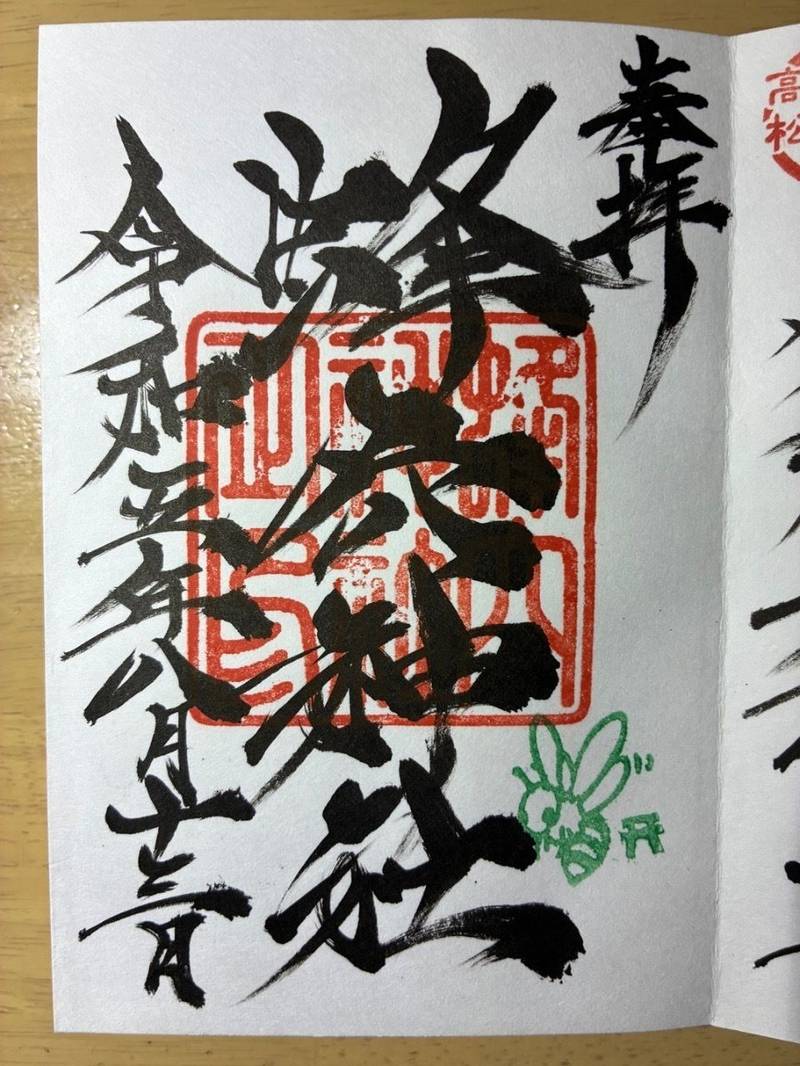 高松
奉拝
蜂穴神社
令和五年八月十三日
蜂穴神社之印